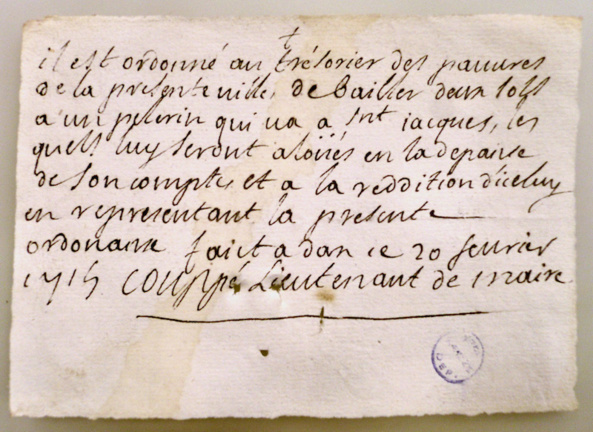 il est ordonné au trésorier des pauures
de la presente uille, de Bailler deux solss
a un pelerin qui ua a snt iacques, les
quells luy seront aloüés en la depance
de son compte, et a la reddition d'iceluy
en representant la presente
ordonance faict a dax ce 20 feurier
1715 Couppé Lieutenant de maire